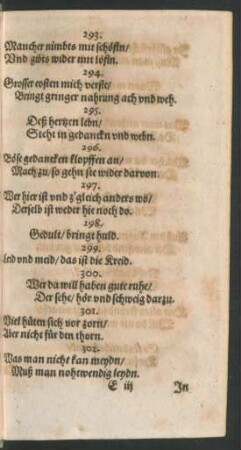 293.
Mancher nimbts mit schöfln/
Vnd gibts wider mit löfln.
294.
Grosser costen mich verste/
Bringt gringer nahrung ach vnd weh.
295.
Deß hertzen lebn/
Steht in gedanckn vnd webn.
296.
Böse gedancken klopffen an/
Mach zu/ so gehn sie wider darvon.
197.
Wer hier ist vnd z'glich anders wo/
Derselb ist weder hie noch do.
198.
Gedult/ bringt huld.
299.
Leid vnd meid/ das ist die Kreid.
300.
Wer da will haben gute ruhe/
Der sehe/ hör vnd schweig darzu.
301.
Viel hüten sich vor zorn/
Aber nicht für den thorn.
302.
Was man nicht kan meydn/
Muß man nohtwendig leydn.
E iij In